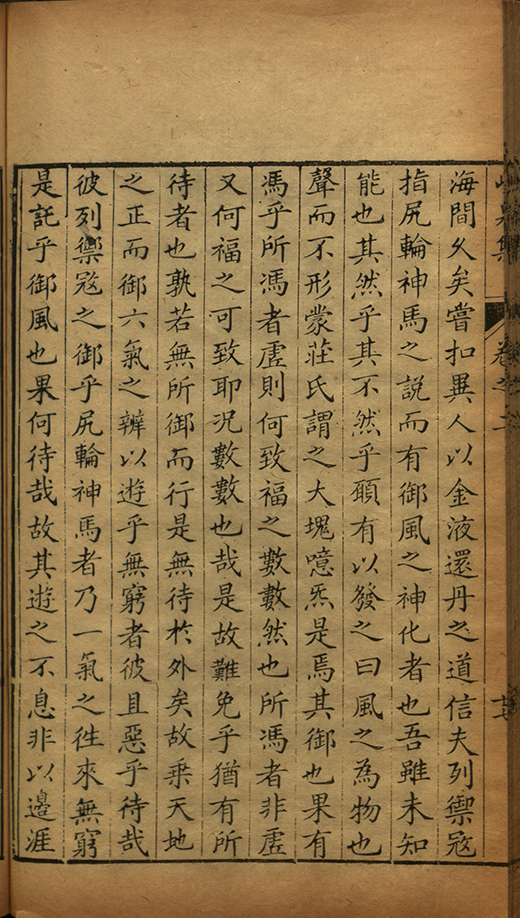 海間久矣嘗扣異人以金液還丹之道信夫列禦寇
指尻輪神馬之説而有御風之神化者也吾雖未知
能也其然乎其不然乎願有以發之曰風之為物也
聲而不形蒙莊氏謂之大塊噫炁是焉其御也果有
馮乎所馮者虛則何致福之數數然也所馮者非虛
又何福之可致耶況數數也哉是故難免乎猶有所
待者也孰若無所御而行是無待於外矣故乗天地
之正而御六氣之辨以遊乎無窮者彼且惡乎待哉
彼列禦寇之御乎尻輪神馬者乃一氣之徃來無窮
是託乎御風也果何待哉故其遊之不息非以邉涯